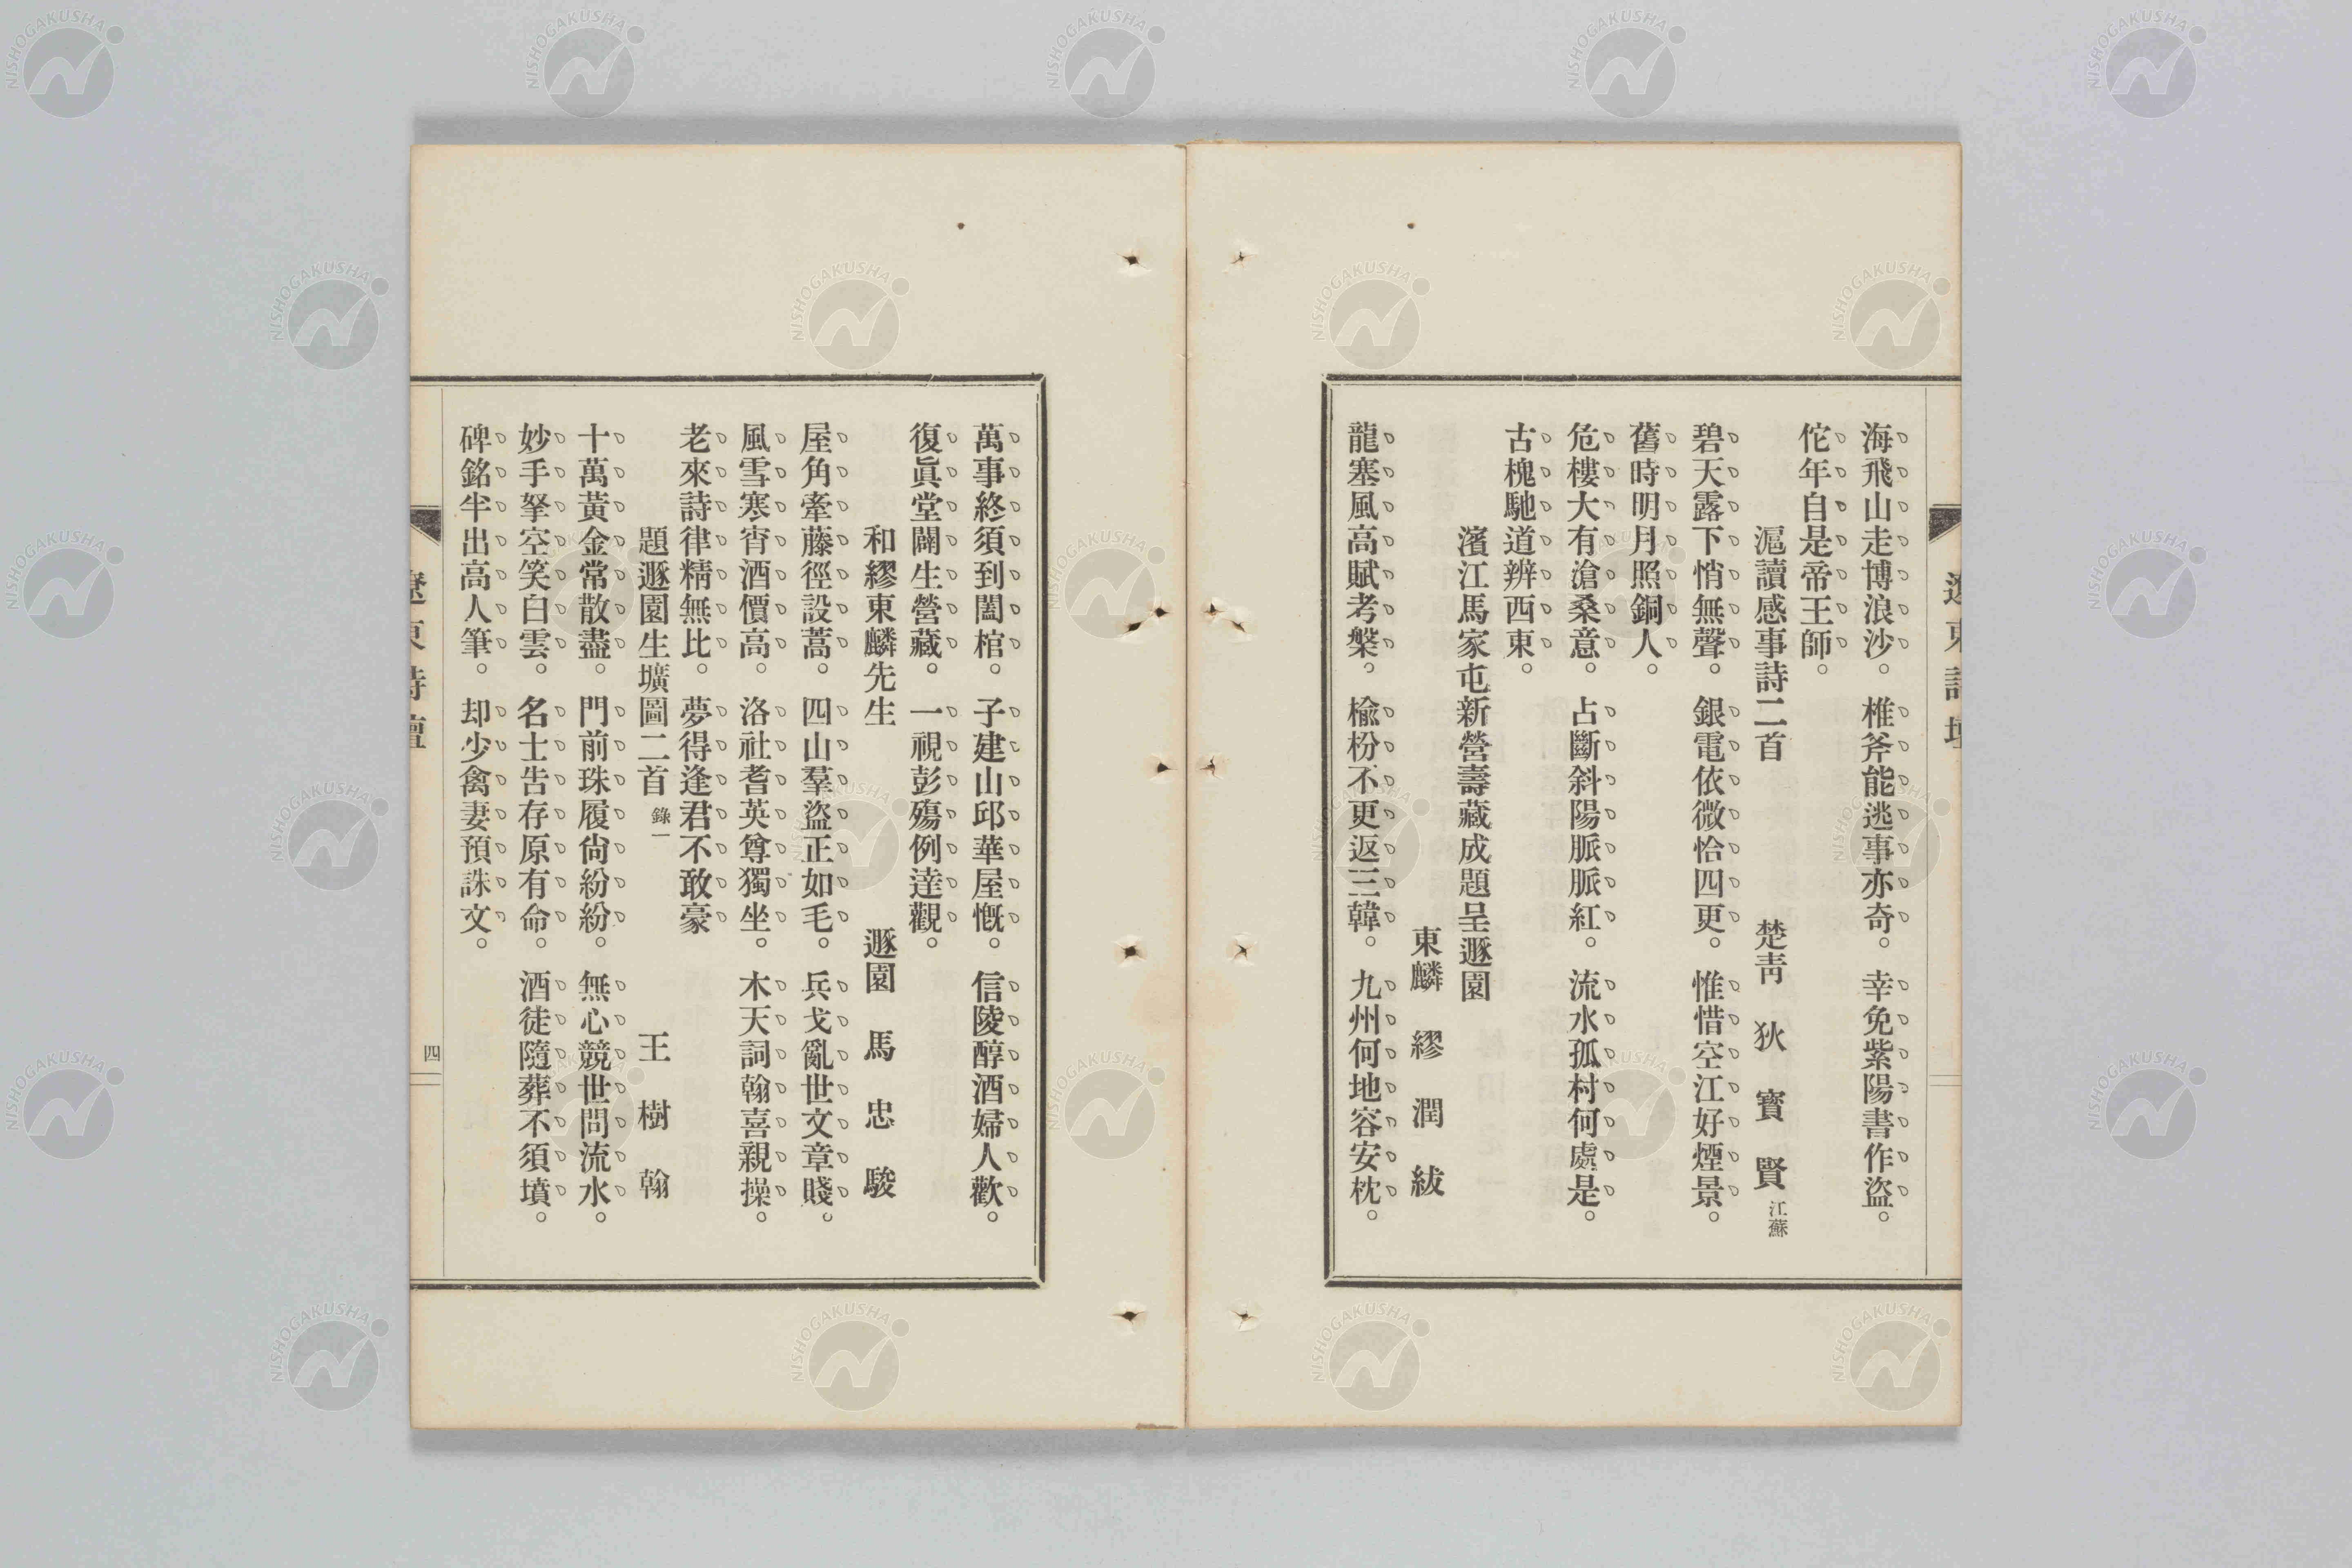 遼東詩壇
海飛山走博浪沙。椎斧能逃事亦奇。幸免紫陽書作盜。
佗年自是帝王師。
滬讀感事詩二首　楚靑　狄寶賢 江蘇
碧天露下悄無聲。銀電依微恰四更。惟惜空江好煙景。
舊時明月照銅人。
危樓大有滄桑意。占斷斜陽脈脈紅。流水孤村何處是。
古槐馳道辨西東。
濱江馬家屯新營壽藏成題呈遯園
東麟　繆潤紱
龍塞風高賦考槃。楡枌不更返三韓。九州何地容安枕。
萬事終須到闔棺。子建山邱華屋慨。信陵醇酒婦人歡。
復眞堂闢生營藏。一視彭殤例達觀。
和繆東麟先生　遯園　馬忠駿
屋角牽藤徑設蒿。四山羣盜正如毛。兵戈亂世文章賤。
風雪寒宵酒價高。洛社耆英尊獨坐。木天詞翰喜親操。
老來詩律精無比。夢得逢君不敢豪
題遯園生壙圖二首 錄一　王樹翰
十萬黃金常散盡。門前珠履尙紛紛。無心競世問流水。
妙手拏空笑白雲。名士告存原有命。酒徒隨葬不須墳。
碑銘半出高人筆。却少禽妻預誄文。
遼東詩壇
四
NISHOGAKUSHA